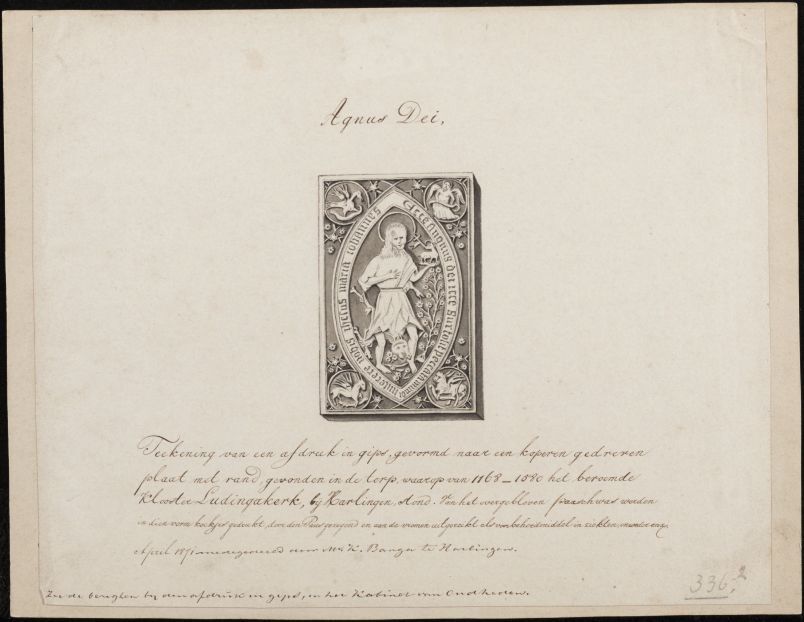 Agnus Dei,
Ecce angnus dei ecce qui tollit peccata mundi miserere nobis ihesus maria iohannes
Teekening van een afdruk in gips, gevormd naar een koperen gedreven
plaat met rand, gevonden in de terp, waarop van 1168–1580 het beroemde
Klooster Ludingakerk, bij Harlingen, stond. Van het overgebleven paaschwas werden
in dien vorm koekjes gedrukt, door den Paus gezegend en aan de vromen uitgereikt als voorbehoedmiddel in ziekten, onweder enz.
April 1871 medegedeeld door Mr. K. Banga te Harlingen.
Zie de berigten bij den afdruk in gips, in het Kabinet van Oudheden.
336,2